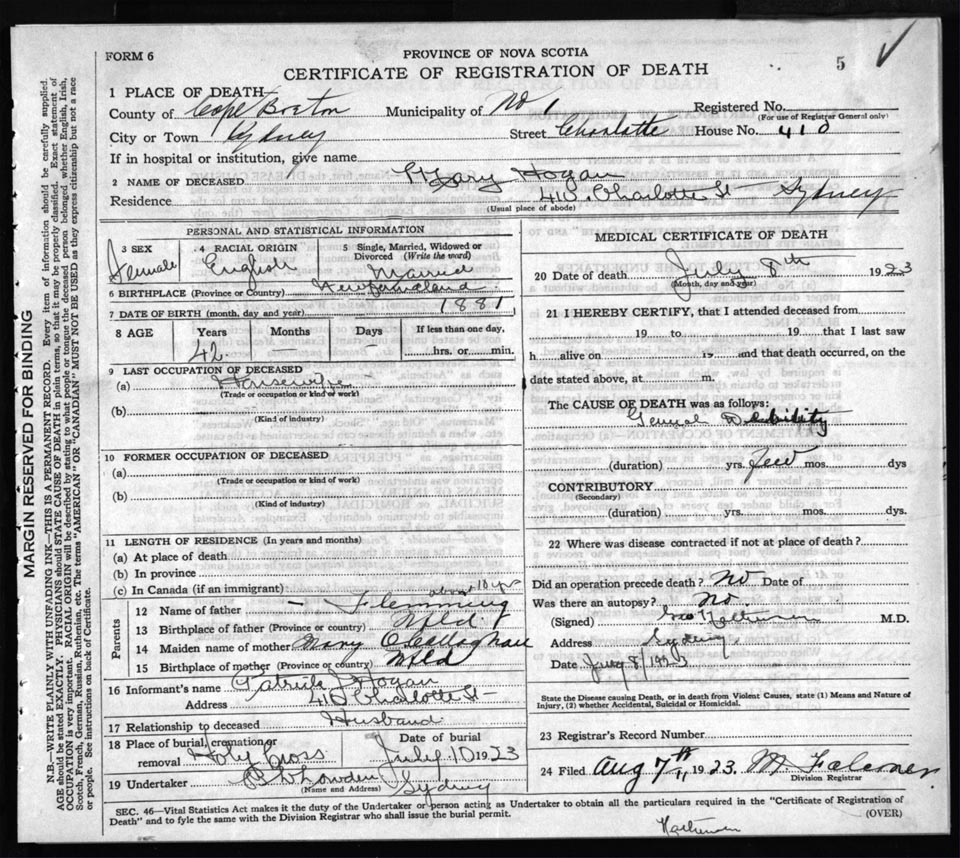 FORM 6
PROVINCE OF NOVA SCOTIA
CERTIFICATE OF REGISTRATION OF DEATH
5
1 PLACE OF DEATH
County of Cape Breton Municipality of No 1 Registered No.
(For use of Registrar General only)
City or Town Sydney Street Charlotte House No. 410
If in hospital or institution, give name
2 NAME OF DECEASED Mary Hogan
Residence 410 Charlotte St Sydney
(Usual place of abode)
PERSONAL AND STATISTICAL INFORMATION
3 SEX 4 RACIAL ORIGIN 5 Single, Married, Widowed or Divorced (Write the word)
Female English Married
6 BIRTHPLACE (Province or Country) Newfoundland
7 DATE OF BIRTH (month, day and year) 1881
8 AGE Years Months Days If less than one day,
42 — — hrs. or min.
9 LAST OCCUPATION OF DECEASED
(a) Housewife
(Trade or occupation or kind of work)
(b)
(Kind of industry)
10 FORMER OCCUPATION OF DECEASED
(a)
(Trade or occupation or kind of work)
(b)
(Kind of industry)
11 LENGTH OF RESIDENCE (In years and months)
(a) At place of death
(b) In province
(c) In Canada (if an immigrant) about 10 yrs
Parents
12 Name of father — Flemming
13 Birthplace of father (Province or country) Nfld
14 Maiden name of mother Mary Challaghan
15 Birthplace of mother (Province or country) Nfld
16 Informant's name Patrick J Hogan
Address 410 Charlotte St
17 Relationship to deceased Husband
18 Place of burial, cremation or removal Holy Cross Date of burial July 10 1923
19 Undertaker Sydney
(Name and Address)
MEDICAL CERTIFICATE OF DEATH
20 Date of death July 8th 1923
(Month, day and year)
21 I HEREBY CERTIFY, that I attended deceased from
19 to 19 that I last saw
h alive on 19 and that death occurred, on the
date stated above, at m.
The CAUSE OF DEATH was as follows:
General Debility
(duration) yrs. Few mos. dys
CONTRIBUTORY
(Secondary)
(duration) yrs. mos. dys.
22 Where was disease contracted if not at place of death?
Did an operation precede death? No Date of
Was there an autopsy? No.
(Signed) M.D.
Address Sydney
Date July 8/1923
State the Disease causing Death, or in death from Violent Causes, state (1) Means and Nature of
Injury, (2) whether Accidental, Suicidal or Homicidal.
23 Registrar's Record Number
24 Filed Aug 7th 1923. M Falconer
Division Registrar
SEC. 46—Vital Statistics Act makes it the duty of the Undertaker or person acting as Undertaker to obtain all the particulars required in the "Certificate of Registration of
Death" and to fyle the same with the Division Registrar who shall issue the burial permit. (OVER)
MARGIN RESERVED FOR BINDING
N.B.—WRITE PLAINLY WITH UNFADING INK—THIS IS A PERMANENT RECORD. Every item of information should be carefully supplied.
AGE should be stated EXACTLY. PHYSICIANS should STATE CAUSE OF DEATH in plain terms, so that it may be properly classified. Exact statement of
OCCUPATION is very important. RACIAL ORIGIN will be described by stating to what people or tongue the deceased person belonged, whether English, Irish,
Scotch, French, German, Russian, Ruthenian, etc. The terms "AMERICAN" OR "CANADIAN" MUST NOT BE USED as they express citizenship but not a race
or people. See instructions on back of Certificate.